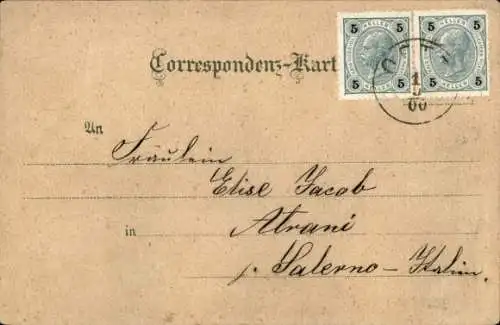 5 HELLER 5 5 HELLER 5
5 HELLER 5 5 HELLER 5
Correspondenz-Kart
1
00
An
Fräulein
Elise Jacob
in Atrani
p. Salerno - Italien.